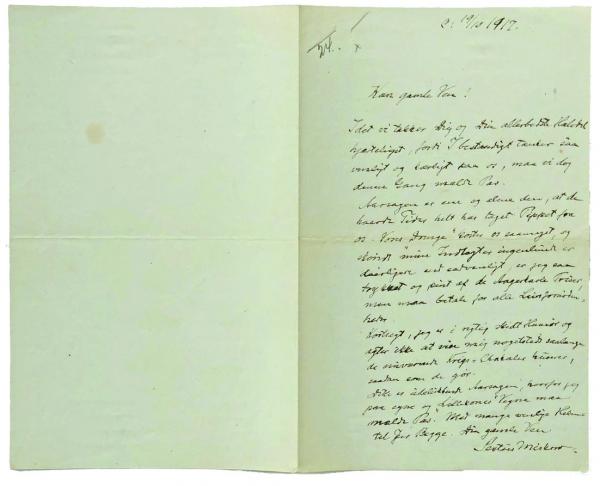 d. 19/10 1917.
24. x
Kære gamle Ven!
Idet vi takker Dig og Din allerbedste Halvdel
hjerteligst, fordi I bestandigt tænker saa
venligt og kærligt paa os, maa vi dog
denne Gang melde Pas.
Aarsagen er ene og alene den, at de
haarde Tider helt har taget Pippet fra
os. Vores Drenge koster os saameget, og
skøndt mine Indtægter ingenlunde er
daarligere end sædvanligt, er jeg saa
trykket og pint af de Aagerkarle Priser,
man maa betale for alle Livsfornøden-
heder.
Kortsagt, jeg er i rigtig sledt Humør og
agter ikke at vise mig nogetsteds saalænge
de nuværende Krigs-Chakaler huserer,
saadan som de gør.
Dette er Aarsagen, hvorfor jeg
paa egne og Lillekones Vegne maa
"melde Pas". Med mange venlige Hilsner
til Jer Begge. Din gamle Ven